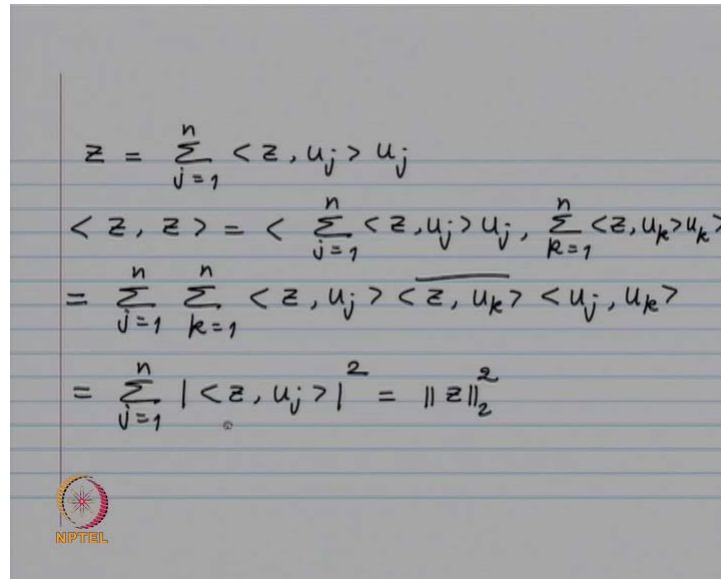 z = \sum_{j=1}^{n} <z, u_j> u_j
<z, z> = < \sum_{j=1}^{n} <z, u_j> u_j, \sum_{k=1}^{n} <z, u_k> u_k >
= \sum_{j=1}^{n} \sum_{k=1}^{n} <z, u_j> \overline{<z, u_k>} <u_j, u_k>
= \sum_{j=1}^{n} |<z, u_j>|^2 = ||z||_2^2
NPTEL